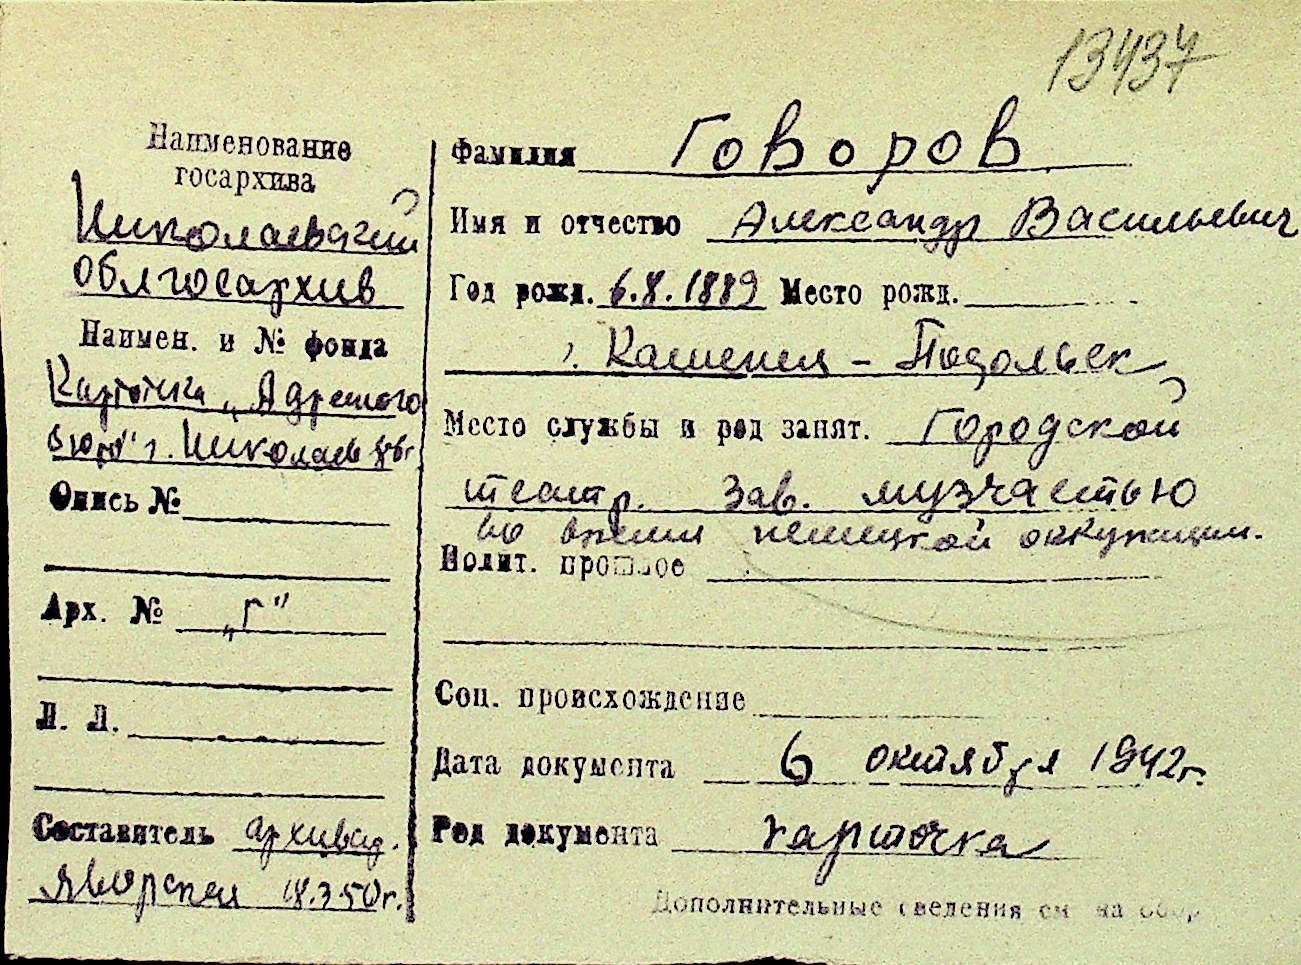 13437
Наименование
госархива
Николаевский
облгосархив
Наимен. и № фонда
Картотека „Адресного
бюро" г. Николаев
Опись №
Арх. № „Г"
Л. Л.
Составитель архивар.
Яворская 18.3.50г.
Фамилия Говоров
Имя и отчество Александр Васильевич
Год рожд. 6.X.1889 Место рожд.
г. Каменец - Подольск
Место службы и род занят. Городской
театр. Зав. музчастью
во время немецкой оккупации.
Полит. прошлое
Соц. происхождение
Дата документа 6 октября 1942г.
Род документа карточка
Дополнительные сведения см на обор